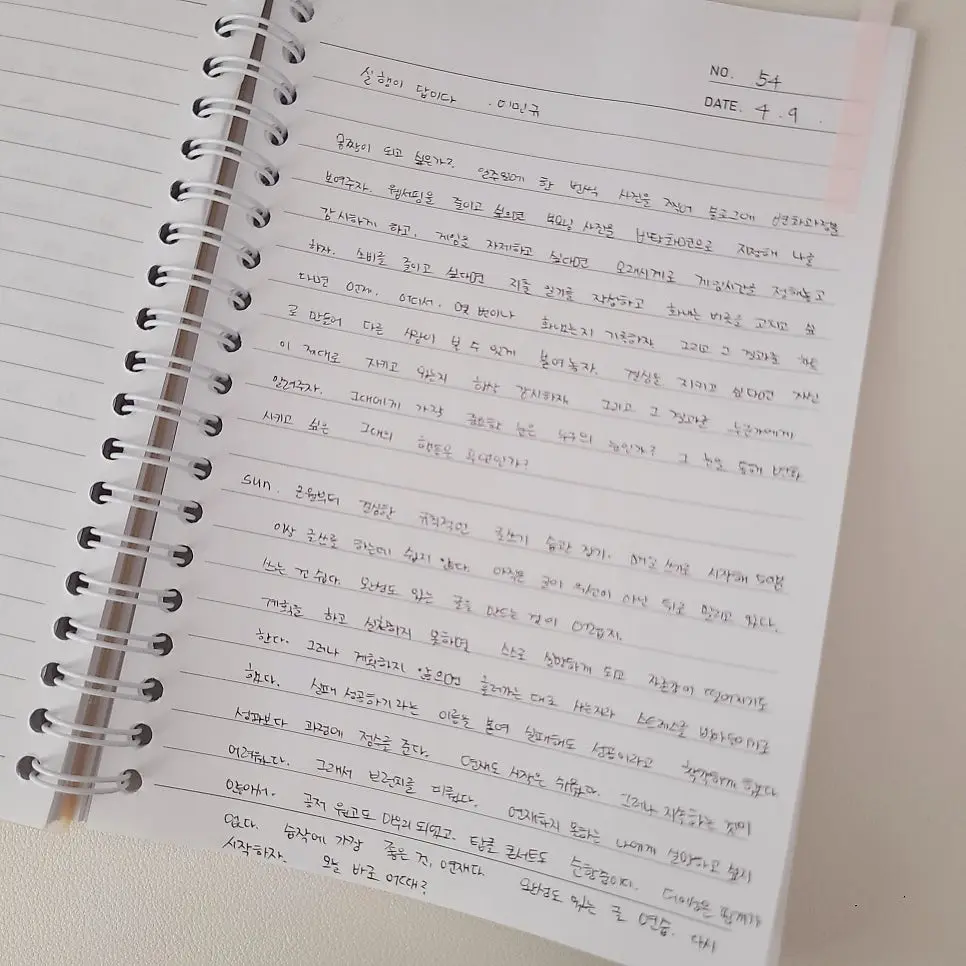 NO. 54
DATE. 4. 9.
실행이 답이다. 이민규
몸짱이 되고 싶은가? 일주일에 한 번씩 사진을 찍어 블로그에 변화과정을
보여주자. 웹서핑을 줄이고 싶으면 부모님 사진을 바탕화면으로 지정해 나를
감시하게 하고, 게임을 자제하고 싶다면 모래시계로 게임시간을 정해놓고
하자. 소비를 줄이고 싶다면 지출 일기를 작성하고 화내는 버릇을 고치고 싶
다면 언제, 어디서, 몇 번이나 화내는지 기록하자. 그리고 그 결과를
로 만들어 다른 사람이 볼 수 있게 붙여놓자. 결심을 지키고 싶다면 자신
이 제대로 지키고 있는지 항상 감시하자. 그리고 그 결과를 누군가에게
알려주자. 그대에게 가장 중요한 눈은 누구의 눈인가? 그 눈을 통해 변화
시키고 싶은 그대의 행동은 무엇인가?
sun. 2월부터 결심한 규칙적인 글쓰기 습관 잡기. 매일 쓰기로 시작해 50일
이상 글쓰기를 하는데 쉽지 않다. 아직은 글이 우선이 아닌 뒤로 밀리고 있다.
쓰는 건 쉽다. 완성도 있는 글을 만드는 것이 어렵지.
계획을 하고 실천하지 못하면 스스로 실망하게 되고 자존감이 떨어지기도
한다. 그러나 계획하지 않으면 흘러가는 대로 사는지라 스트레스를 받아들이기로
했다. 실패 성공하기라는 이름을 붙여 실패해도 성공이라고 착각하게 했다
성과보다 과정에 점수를 준다. 연재도 시작은 쉬웠다. 그러나 지속하는 것이
어려웠다. 그래서 브런치를 미뤘다. 연재하지 못하는 나에게 실망하고 싶지
않아서. 공저 원고도 마무리 되었고, 탑클 콘서트도 순항중이다. 더이상은 핑계가
없다. 습작에 가장 좋은 건, 연재다. 완성도 있는 글 연습. 다시
시작하자. 오늘 바로 어때?